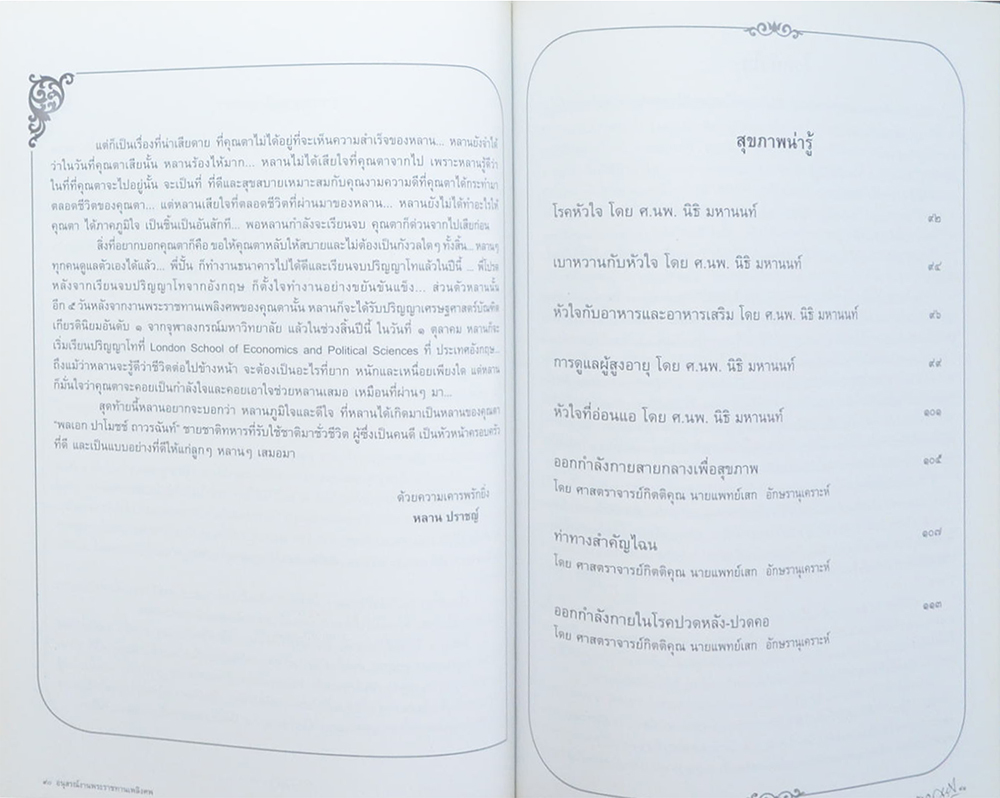 แต่ก็เป็นเรื่องที่น่าเสียดาย ที่คุณตาไม่ได้อยู่ที่จะเห็นความสำเร็จของหลาน... หลานยังจำได้
ว่าในวันที่คุณตาเสียนั้น หลานร้องไห้มาก... หลานไม่ได้เสียใจที่คุณตาจากไป เพราะหลานรู้ดีว่า
ในที่ที่คุณตาจะไปอยู่นั้น จะเป็นที่ ที่ดีและสุขสบายเหมาะสมกับคุณงามความดีที่คุณตาได้กระทำมา
ตลอดชีวิตของคุณตา... แต่หลานเสียใจที่ตลอดชีวิตที่ผ่านมาของหลาน... หลานยังไม่ได้ทำอะไรให้
คุณตา ได้ภาคภูมิใจ เป็นชิ้นเป็นอันสักที... พอหลานกำลังจะเรียนจบ คุณตาก็ด่วนจากไปเสียก่อน
สิ่งที่อยากบอกคุณตาก็คือ ขอให้คุณตาหลับให้สบายและไม่ต้องเป็นกังวลใดๆ ทั้งสิ้น... หลานๆ
ทุกคนดูแลตัวเองได้แล้ว... พี่ปั้น ก็ทำงานธนาคารไปได้ดีและเรียนจบปริญญาโทแล้วในปีนี้ ... พี่โปรด
หลังจากเรียนจบปริญญาโทจากอังกฤษ ก็ตั้งใจทำงานอย่างขยันขันแข็ง... ส่วนตัวหลานนั้น
อีก ๕ วันหลังจากงานพระราชทานเพลิงศพของคุณตานั้น หลานก็จะได้รับปริญญาเศรษฐศาสตร์บัณฑิต
เกียรตินิยมอันดับ ๑ จากจุฬาลงกรณ์มหาวิทยาลัย แล้วในช่วงสิ้นปีนี้ ในวันที่ ๑ ตุลาคม หลานก็จะ
เริ่มเรียนปริญญาโทที่ London School of Economics and Political Sciences ที่ ประเทศอังกฤษ...
ถึงแม้ว่าหลานจะรู้ดีว่าชีวิตต่อไปข้างหน้า จะต้องเป็นอะไรที่ยาก หนักและเหนื่อยเพียงใด แต่หลาน
ก็มั่นใจว่าคุณตาจะคอยเป็นกำลังใจและคอยเอาใจช่วยหลานเสมอ เหมือนที่ผ่านๆ มา...
สุดท้ายนี้หลานอยากจะบอกว่า หลานภูมิใจและดีใจ ที่หลานได้เกิดมาเป็นหลานของคุณตา
"พลเอก ปาโมชช์ ถาวรฉันท์" ชายชาติทหารที่รับใช้ชาติมาชั่วชีวิต ผู้ซึ่งเป็นคนดี เป็นหัวหน้าครอบครัว
ที่ดี และเป็นแบบอย่างที่ดีให้แก่ลูกๆ หลานๆ เสมอมา
ด้วยความเคารพรักยิ่ง
หลาน ปราชญ์
๙๐ อนุสรณ์งานพระราชทานเพลิงศพ
สุขภาพน่ารู้
โรคหัวใจ โดย ศ.นพ. นิธิ มหานนท์ ๙๒
เบาหวานกับหัวใจ โดย ศ.นพ. นิธิ มหานนท์ ๙๔
หัวใจกับอาหารและอาหารเสริม โดย ศ.นพ. นิธิ มหานนท์ ๙๖
การดูแลผู้สูงอายุ โดย ศ.นพ. นิธิ มหานนท์ ๙๙
หัวใจที่อ่อนแอ โดย ศ.นพ. นิธิ มหานนท์ ๑๐๑
ออกกำลังกายสายกลางเพื่อสุขภาพ ๑๐๕
โดย ศาสตราจารย์กิตติคุณ นายแพทย์เสก อักษรานุเคราะห์
ท่าทางสำคัญไฉน ๑๐๗
โดย ศาสตราจารย์กิตติคุณ นายแพทย์เสก อักษรานุเคราะห์
ออกกำลังกายในโรคปวดหลัง-ปวดคอ ๑๑๓
โดย ศาสตราจารย์กิตติคุณ นายแพทย์เสก อักษรานุเคราะห์